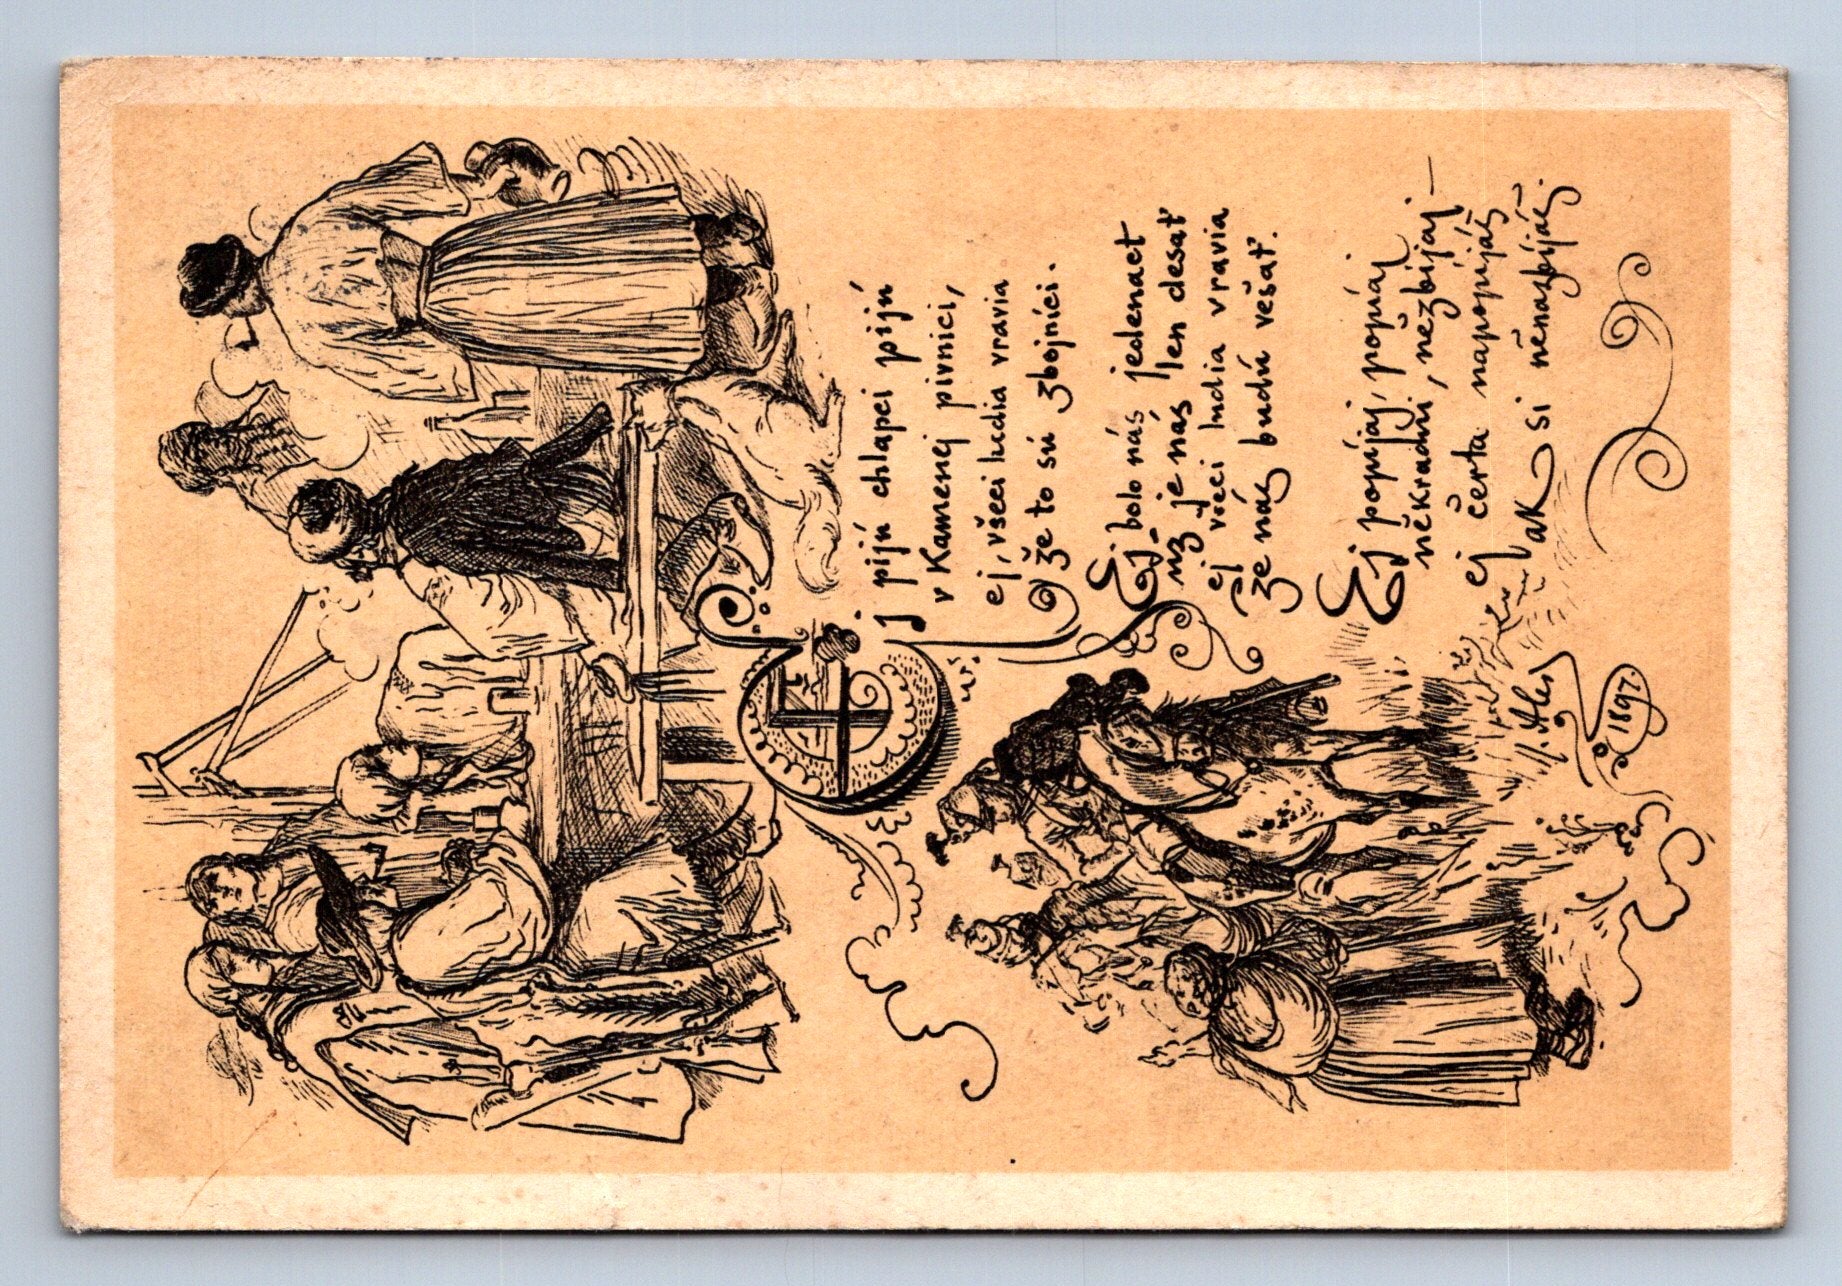 Ej pijú chlapci pijú
v Kamenej pivnici,
ej, všeci ludia vravia
že to sú zbojníci.
Ej bolo nás jedenact
už je nás len desať
ej všeci ludia vravia
že nás budú vešať.
Ej popíjaj, popíjaj
někradni, nězbíjaj –
ej čerta napopíjáš
ak si něnazbíjáš.
M. Aleš
1897.